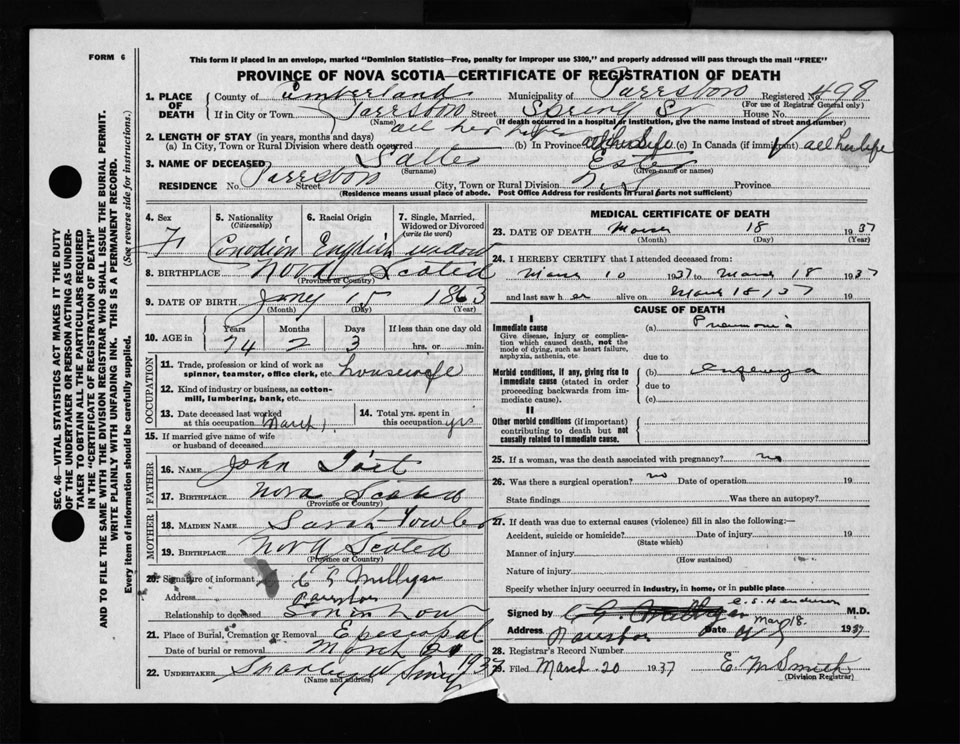 FORM 6
This form if placed in an envelope, marked "Dominion Statistics—Free, penalty for improper use $300," and properly addressed will pass through the mail "FREE"
PROVINCE OF NOVA SCOTIA—CERTIFICATE OF REGISTRATION OF DEATH
SEC. 46—VITAL STATISTICS ACT MAKES IT THE DUTY
OF THE UNDERTAKER OR PERSON ACTING AS UNDER-
TAKER TO OBTAIN ALL THE PARTICULARS REQUIRED
IN THE "CERTIFICATE OF REGISTRATION OF DEATH"
AND TO FILE THE SAME WITH THE DIVISION REGISTRAR WHO SHALL ISSUE THE BURIAL PERMIT.
WRITE PLAINLY WITH UNFADING INK. THIS IS A PERMANENT RECORD.
Every item of information should be carefully supplied. (See reverse side for instructions.)
1. PLACE OF DEATH County of Cumberland Municipality of Parrsboro Registered No. 498
(For use of Registrar General only)
If in City or Town Parrsboro Street Spring St House No.
(Name) (If death occurred in a hospital or institution, give the name instead of street and number)
2. LENGTH OF STAY (in years, months and days)
(a) In City, Town or Rural Division where death occurred all her life (b) In Province all her life (c) In Canada (if immigrant) all her life
3. NAME OF DECEASED Salter Ester
(Surname) (Given name or names)
RESIDENCE No. Parrsboro Street City, Town or Rural Division N.S. Province
(Residence means usual place of abode. Post Office Address for residents in rural parts not sufficient)
4. Sex 5. Nationality (Citizenship) 6. Racial Origin 7. Single, Married, Widowed or Divorced (write the word)
F Canadian English widow
8. BIRTHPLACE Nova Scotia
(Province or Country)
9. DATE OF BIRTH Janey 15 1863
(Month) (Day) (Year)
10. AGE in Years Months Days If less than one day old
74 2 3 hrs. or min.
OCCUPATION
11. Trade, profession or kind of work as spinner, teamster, office clerk, etc. housewife
12. Kind of industry or business, as cotton-mill, lumbering, bank, etc.
13. Date deceased last worked at this occupation March 1 14. Total yrs. spent in this occupation yrs
15. If married give name of wife or husband of deceased
FATHER
16. NAME John
17. BIRTHPLACE Nova Scotia
(Province or Country)
MOTHER
18. MAIDEN NAME Sarah Fowler
19. BIRTHPLACE Nova Scotia
(Province or Country)
20. Signature of informant Millgan
Address Parrsboro
Relationship to deceased Son in Law
21. Place of Burial, Cremation or Removal Episcopal
Date of burial or removal March 1937
22. UNDERTAKER
(Name and address)
MEDICAL CERTIFICATE OF DEATH
23. DATE OF DEATH 18 1937
(Month) (Day) (Year)
24. I HEREBY CERTIFY that I attended deceased from:
10 1937 to 18 1937
and last saw her alive on March 18/37 19
CAUSE OF DEATH
I
Immediate cause
Give disease, injury or complication which caused death, not the mode of dying, such as heart failure, asphyxia, asthenia, etc.
(a) Pneumonia
due to
Morbid conditions, if any, giving rise to immediate cause (stated in order proceeding backwards from immediate cause).
(b)
due to
(c)
II
Other morbid conditions (if important) contributing to death but not causally related to immediate cause.
25. If a woman, was the death associated with pregnancy? no
26. Was there a surgical operation? no Date of operation 19
State findings Was there an autopsy?
27. If death was due to external causes (violence) fill in also the following:—
Accident, suicide or homicide? Date of injury 19
(State which)
Manner of injury
(How sustained)
Nature of injury
Specify whether injury occurred in industry, in home, or in public place
Signed by M.D.
Address Parrsboro Date Mar 18 1937
28. Registrar's Record Number
29. Filed March 20 1937 E. M Smith
(Division Registrar)